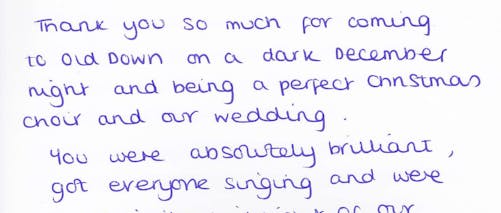 Thank you so much for coming
to Old Down on a dark December
night and being a perfect Christmas
choir and our wedding.
You were absolutely brilliant,
got everyone singing and were
of our